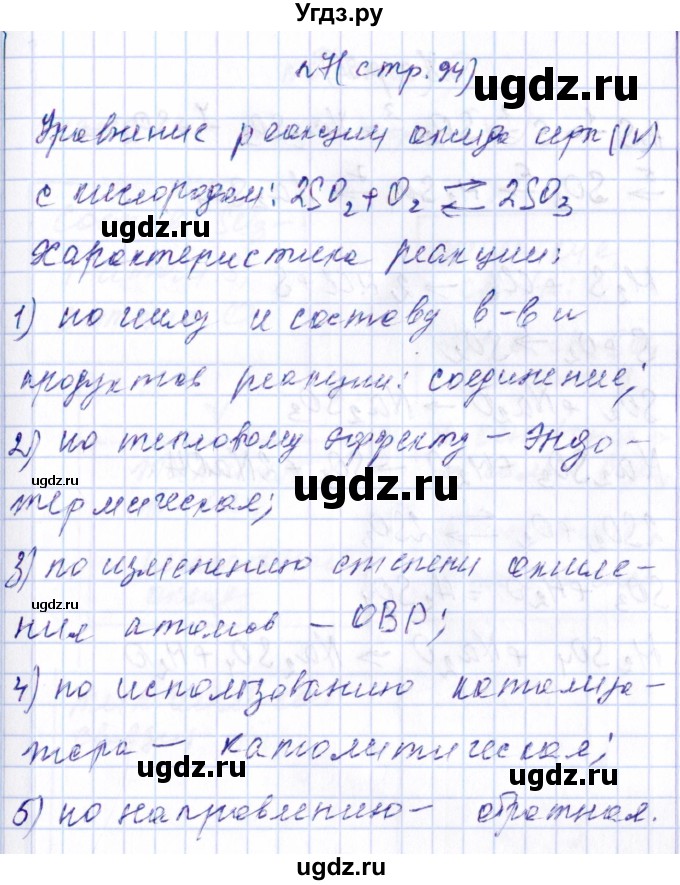 Угдз.ру
n7 (стр.94)
ugdz.ru
Уравнение реакции оксида серы (IV)
с кислородом: 2SO2 + O2 ⇄ 2SO3
ugdz.ru
Характеристика реакции:
1) по числу и составу в-в и
продуктов реакции: соединение;
ugdz.ru
2) по тепловому эффекту – эндо-
ugdz.ru
термическая;
3) по изменению степени окисле-
ugdz.ru
ния атомов – ОВР;
ugdz.ru
4) по использованию катализа-
тора – каталитическая;
ugdz.ru
5) по направлению – обратная.
ugdz.ru